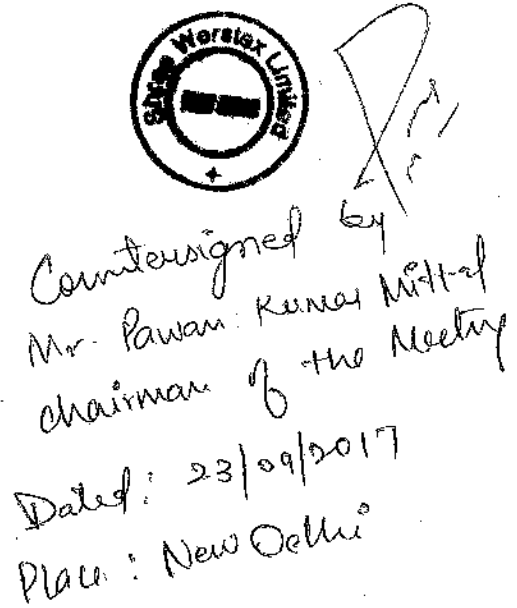 Shree Worstex Limited
Countersigned by
Mr. Pawan Kumar Mittal
chairman of the Meeting
Dated: 23/09/2017
Place: New Delhi